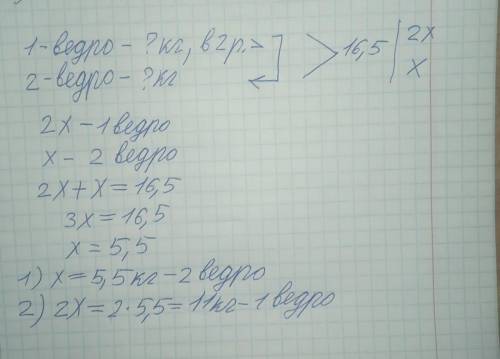 1-ведро - ?кг, в 2р. > 16,5 | 2x
2-ведро - ?кг x
2x - 1 ведро
x - 2 ведро
2x + x = 16,5
3x = 16,5
x = 5,5
1) x = 5,5 кг - 2 ведро
2) 2x = 2 · 5,5 = 11 кг - 1 ведро